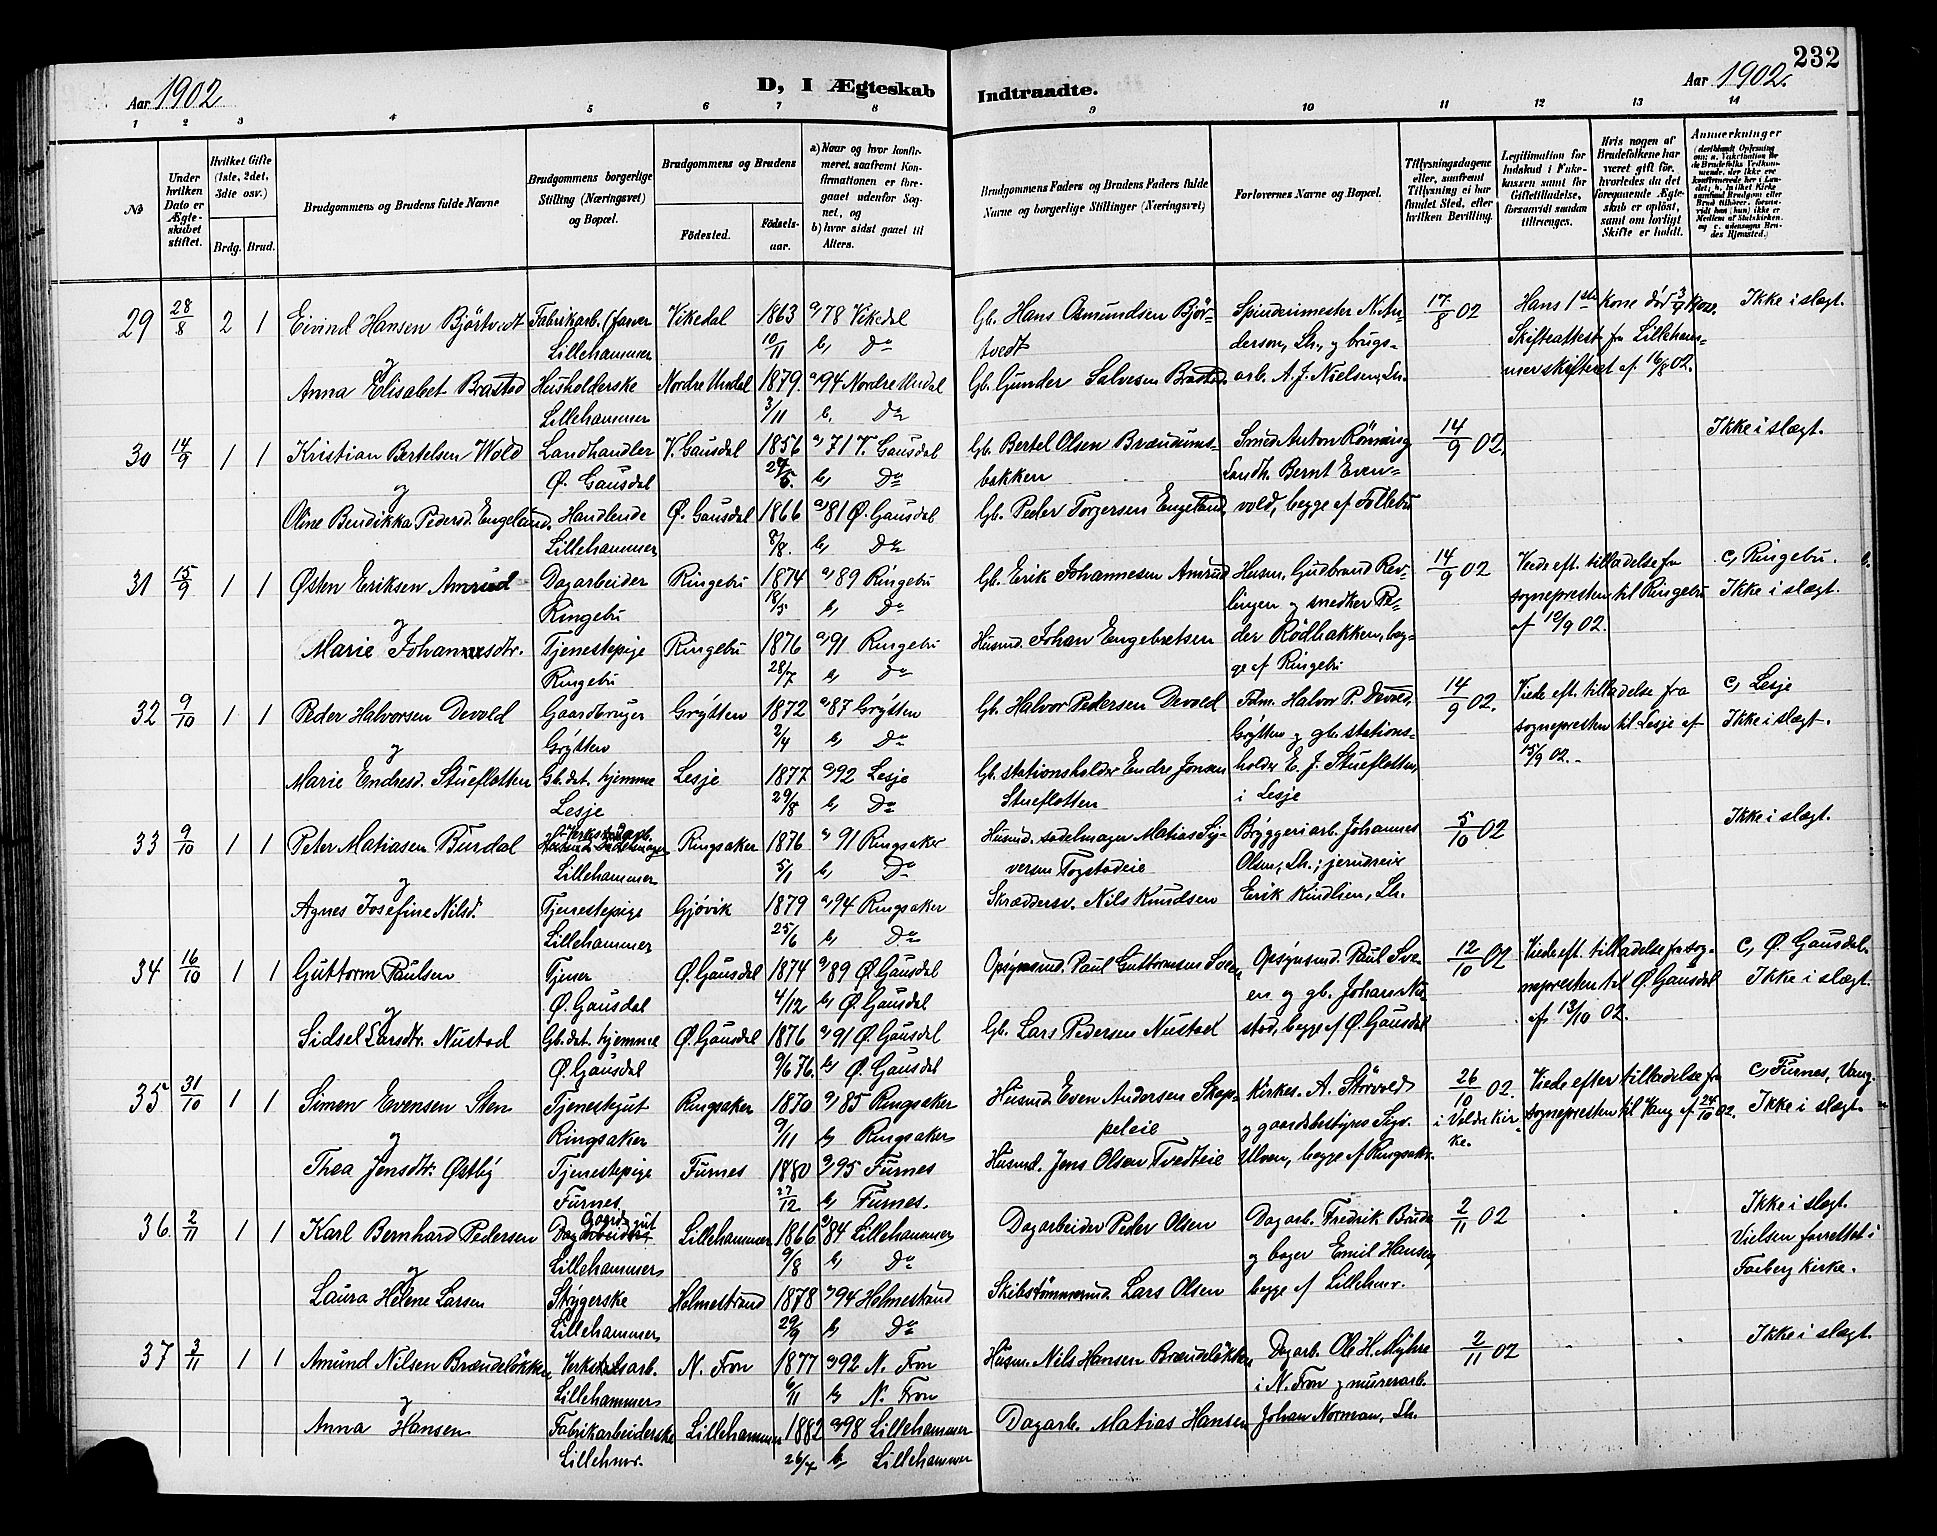 232
Aar 1902
D, I Ægteskab Indtraadte.
Aar 1902.
1 2 3 4 5 6 7 8 9 10 11 12 13 14
№
Under hvilken Dato er Ægteskabet stiftet.
Hvilket Gifte (1ste, 2det, 3die osv.)
Brdg. Brud.
Brudgommens og Brudens fulde Navne
Brudgommens borgerlige Stilling (Næringsvei) og Bopæl.
Brudgommens og Brudens
Fødested.
Fødselsaar.
a) Naar og hvor konfirmeret, saafremt Konfirmationen er foregaaet udenfor Sognet, og
b) hvor sidst gaaet til Alters.
Brudgommens Faders og Brudens Faders fulde Navne og borgerlige Stillinger (Næringsvei)
Forlovernes Navne og Bopæl.
Tillysningsdagene eller, saafremt Tillysning ei har fundet Sted, efter hvilken Bevilling.
Legitimation for Indskud i Enkekassen samt for Giftetilladelse, forsaavidt saadan tiltrænges.
Hvis nogen af Brudefolkene har været gift før, hvorledes da det foregaaende Ægteskab er opløst, samt om lovligt Skifte er holdt.
Anmerkninger
29 28/8 2 1 Eivind Hansen Bjørtvedt Fabrikarb. (farver Vikedal 1863 a, 78 Vikedal Gb. Hans Osmundsen Bjør- Spinderimester N. An- 17/8 02 Hans 1ste kone død Ikke i slægt.
og Lillehammer 10/11 b, Do tvedt derson, Lh., og brugs- Skifteattest fra Lilleham-
Anna Elisabet Brastad Husholderske Nordre Undal 1879. a, 94 Nordre Undal Gb. Gunder Salvesen Brastad. arb. A. J. Nielsen, Lh. merskifteret af 16/8 02.
Lillehammer 3/11 b, Do
30 14/9 1 1 Kristian Bertelsen Wold Landhandler V. Gausdal 1856 a, 71 V. Gausdal Gb. Bertel Olsen Brændums- Smed Anton Rønning 14/9 02. Ikke i slægt.
og Ø. Gausdal b, Do bakken Landh. Bernt Even-
Oline Bendikka Pedersd. Engeland. Handlende Ø. Gausdal 1866 a, 81 Ø. Gausdal Gb. Peder Torgersen Engeland, vold, begge af Follebu
Lillehammer 8/8. b, Do
31 15/9 1 1 Østen Eriksen Amrud Dagarbeider Ringebu 1874 a, 89 Ringebu Gb. Erik Johannesen Amrud Husm. Gudbrand Rev- 14/9 02 Viede eft. tilladelse fra c, Ringebu.
og Ringebu 18/5 b, Do lingen og snedker Pe- sognepresten til Ringebu Ikke i slægt.
Marie Johannesdtr. Tjenestepige Ringebu 1876 a, 91 Ringebu Husmd. Johan Engebretsen der Rødbakken, beg- af 10/9 02.
Ringebu 28/7 b, Do ge af Ringebu
32 9/10 1 1 Peder Halvorsen Devold Gaardbruger Grytten 1872 a, 87 Grytten Gb. Halvor Pedersen Devold Fdm. Halvor P. Devold, 14/9 02. Viede eft. tilladelse fra c, Lesje
og Grytten 2/4 b, Do Grytten og gb. stations- sognepresten til Lesje af Ikke i slægt.
Marie Endresd. Stueflotten Gb.dat. hjemme Lesje 1877 a, 92 Lesje Gb. stationsholder Endre Jonsen holder E. J. Stueflotten, 15/9 02.
Lesje 29/8 b, Do Stueflotten i Lesje
33 9/10 1 1 Peter Matiasen Burdal Ringsaker 1876 a, 91 Ringsaker Husmd. sadelmager Matias Sy- Bryggeriarb. Johannes 5/10 02 Ikke i slægt.
og Lillehammer 5/1 b, Do versen Togstadeie Olsen, Lh.;
Agnes Josefine Nilsd. Tjenestepige Gjøvik 1879 a, 94 Ringsaker Skræddersv. Nils Knudsen Erik Kindlien, Lh.
Lillehammer 25/6 b, Do
34 16/10 1 1 Guttorm Paulsen Tjener Ø. Gausdal 1874 a, 89 Ø. Gausdal Opsynsmd. Paul Guttormsen Sveen Opsynsmd. Paul Sve- 12/10 02 Viede eft. tilladelse fra sog- c, Ø. Gausdal.
og Ø. Gausdal 4/12 b, Ø. Gausdal en og gb. Johan Nu- nepresten til Ø. Gausdal Ikke i slægt.
Sidsel Larsdtr. Nustad Gb.dat. hjemme Ø. Gausdal 1876 a, 91 Ø. Gausdal Gb. Lars Pedersen Nustad stad, begge af Ø. Gausdal af 13/10 02.
Ø. Gausdal 9/6 76. b, Ø. Gausdal
35 31/10 1 1 Simen Evensen Sten Tjenestgut Ringsaker 1870 a, 85 Ringsaker Husmd. Even Andersen Skap- Kirkes. A. Størvold 26/10 02. Viede efter tilladelse fra c, Furnes, Vang.
og Ringsaker 9/11 b, Ringsaker peleie og gaardsbestyrer Sigv. i Veldre kir- sognepresten til Vang af 24/10 02. Ikke i slægt.
Thea Jensdtr. Østby Tjenestepige Furnes 1880 a, 95 Furnes Husmd. Jens Olsen Tvedteie Ulven, begge af Ringsaker. ke.
Furnes 27/12 b, Furnes.
36. 2/11 1 1 Karl Bernhard Pedersen Gaardsgut Lillehammer 1866 a, 84 Lillehammer Dagarbeider Peder Olsen Dagarb. Fredrik Brude 2/11 02 Ikke i slægt.
og Lillehammer 9/8 b, Do og bager Emil Hansen, Vielsen forrettet i
Laura Helene Larsen Strygerske Holmestrand 1878 a, 94 Holmestrand Skibstømmermd. Lars Olsen begge af Lillehmr. Faaberg kirke.
Lillehammer 29/9 b, Do
37 3/11 1 1 Amund Nilsen Brændeløkken Verkstedsarb. N. Fron 1877 a, 92 N. Fron Husm. Nils Hansen Brændeløkken Dagarb. Ole H. Myhre 2/11 02 Ikke i slægt.
og Lillehammer 6/11 b, N. Fron i N. Fron og murerarb.
Anna Hansen Fabrikarbeiderske Lillehammer 1882 a, 98 Lillehammer Dagarb. Matias Hansen Johan Norman, Lh.
Lillehmr. 26/7 b, Lillehammer